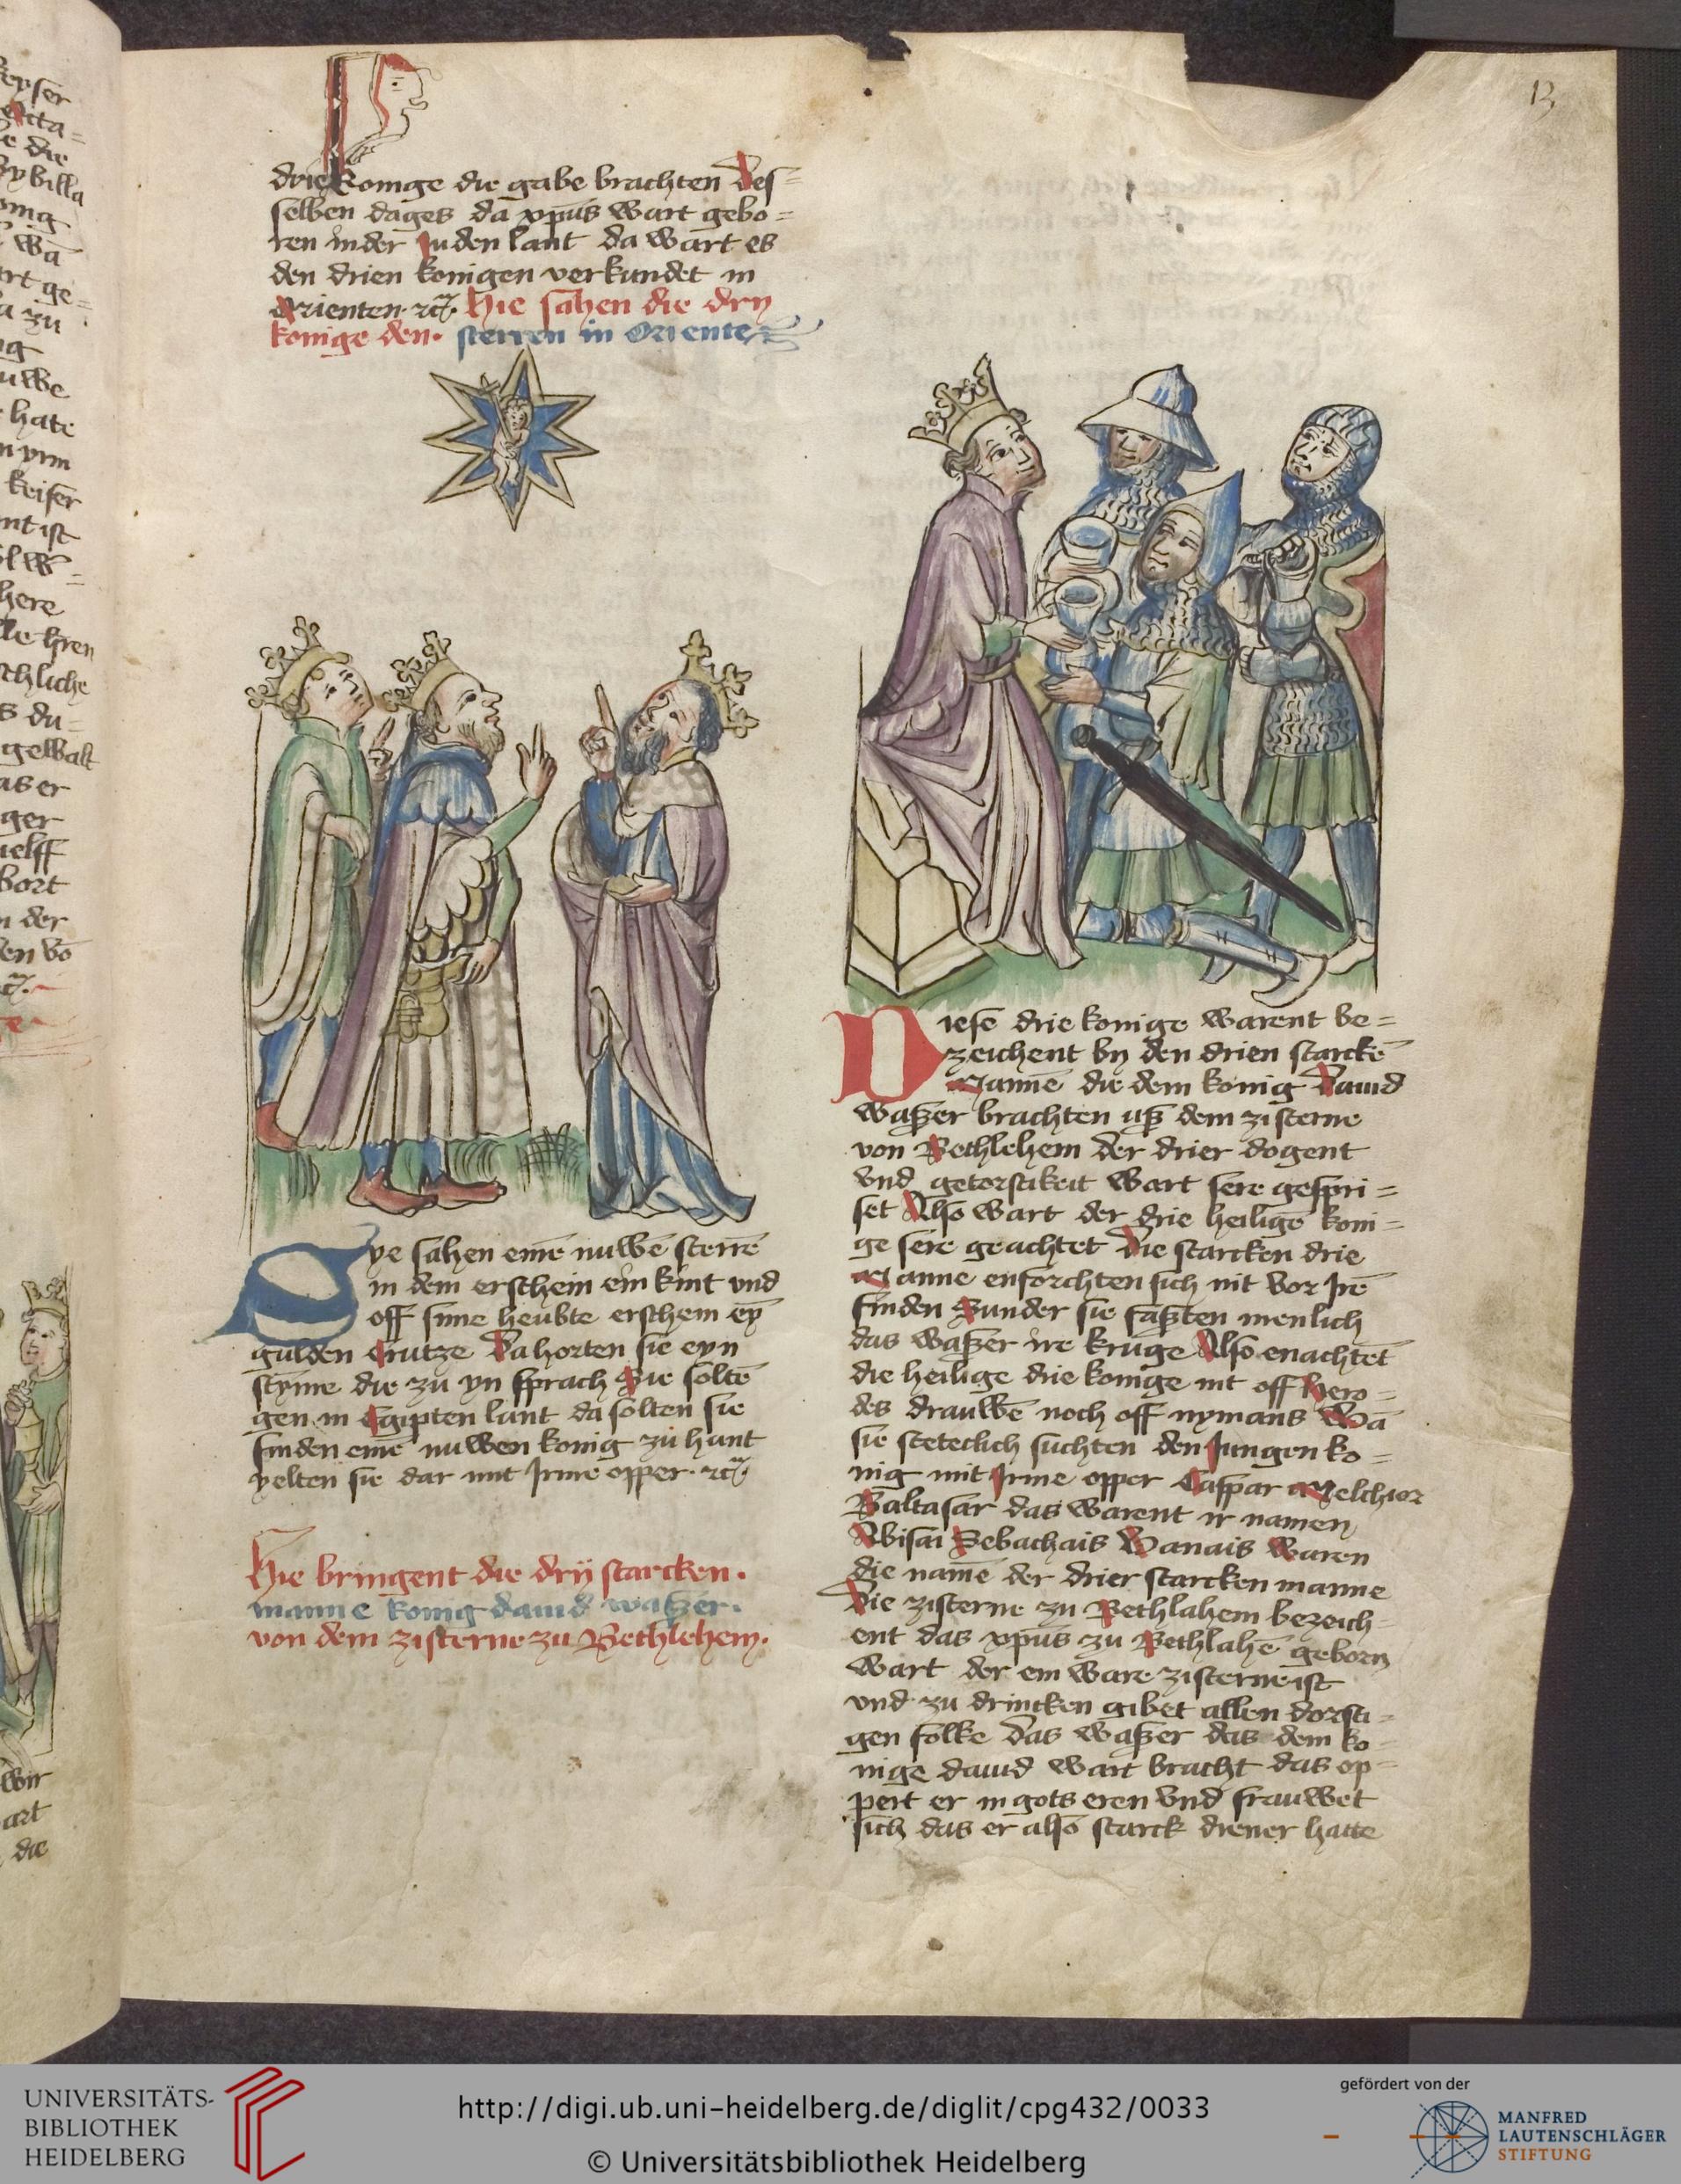 13
drie Konige die gabe brachten Des=
selben dages da xpūs wart gebo=
ren inder Juden lant da wart es
den drien konigen verkundet in
Orienten ꝛc̃. Hie sahen die dry
konige den. sterren in Oriente
Sye sahen eine nuwē sterrē
in dem erschein ein kint vnd
off sime heubte erschein ey̅
gulden Crutze Da horten sie eyn
styme die zu yn sprach Sie soltē
gen in Egipten lant da solten sie
finden eine nuwen konig zu hant
yelten sie dar mit Irme opper ꝛc̃.
Hie bringent die drij starcken.
manne konig dauid waßer.
von dem zisterne zu Bethlehem.
Diese drie konige warent be=
zeichent by den drien starckē
Mannē die dem konig Dauid
waßer brachten uß dem zisterne
von Bethlehem der drier dogent
vnd getorstikeit wart sere gepri=
set Also wart der drie heiligē koni=
ge sere geachtet Die starcken drie
Manne enforchten sich nit vor Irē
finden Sunder sie faßten menlich
das waßer ire kruge Also enachtet
die heilige drie konige nit off hero=
des drauwē noch off nymans Wā
sie steteclich suchten den Jungen ko=
nig mit Irme opper Caspar Melchior
Baltasar das warent ir namen
Abisai Sebachais Banais waren
die namē der drier starcken manne
Die zisterne zu Bethlahem bezeich=
ent das xpūs zu Bethlahē geborn
wart der ein ware zisterne ist
vnd zu drincken gibet allen dorsti=
gen folke Das waßer das dem ko=
nige dauid wart bracht das op=
pert er in gots eren vnd frauwet
sich das er also starck diener hatte
eyser
e die
Sybilla
wa
art ge=
a zu
uwe
hate
keiser
nt ist
here
thliche
s du=
gewalt
as er
ger
bort
der
wir
art
die
UNIVERSITÄTS-
BIBLIOTHEK
HEIDELBERG
http://digi.ub.uni-heidelberg.de/diglit/cpg432/0033
© Universitätsbibliothek Heidelberg
gefördert von der
MANFRED
LAUTENSCHLÄGER
STIFTUNG